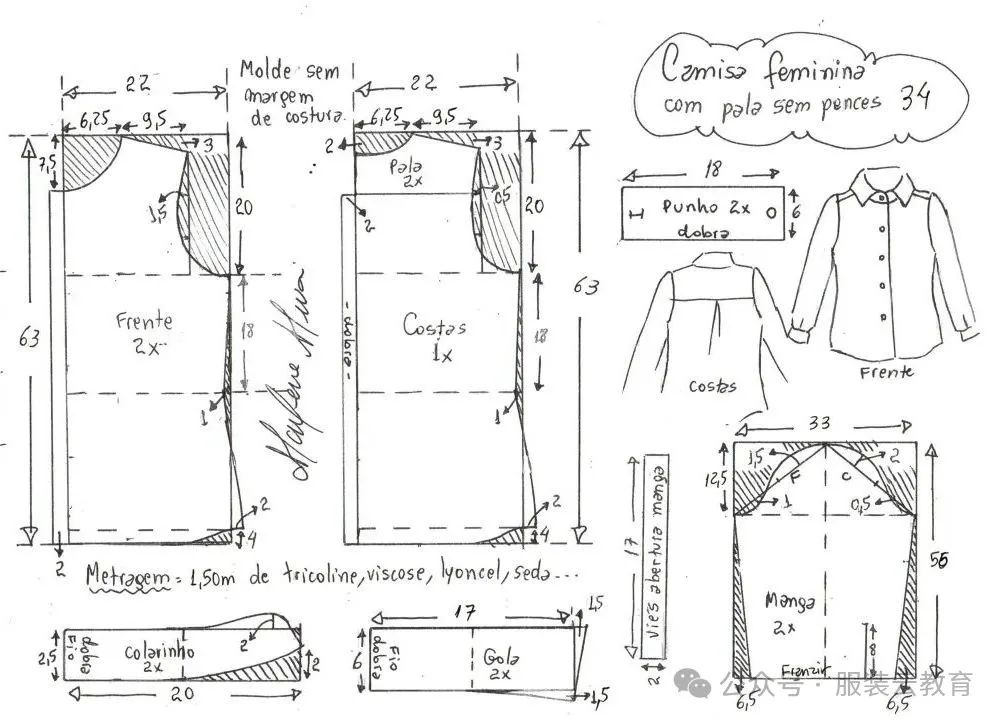 Camisa feminina
com pala sem pences 34
Molde sem
margem
de costura.
22
6,25
9,5
3
7,5
1,5
20
63
Frente
2x
18
1
2
4
2
22
2
3
Pala
2x
0,5
20
2
63
dobra
Costas
1x
18
1
2
4
18
Punho 2x
dobra
6
costas
Frente
Metragem = 1,50m de tricoline, viscose, lyoncel, seda...
2,5
Fio
dobra
Colarinho
2x
2
2
20
17
1,5
6
Fio
dobra
Gola
2x
1,5
17
Viés abertura manga
2
33
12,5
1,5
F
C
2
1
0,5
55
Manga
2x
8
Franzir
6,5
6,5
公众号 · 服装云教育